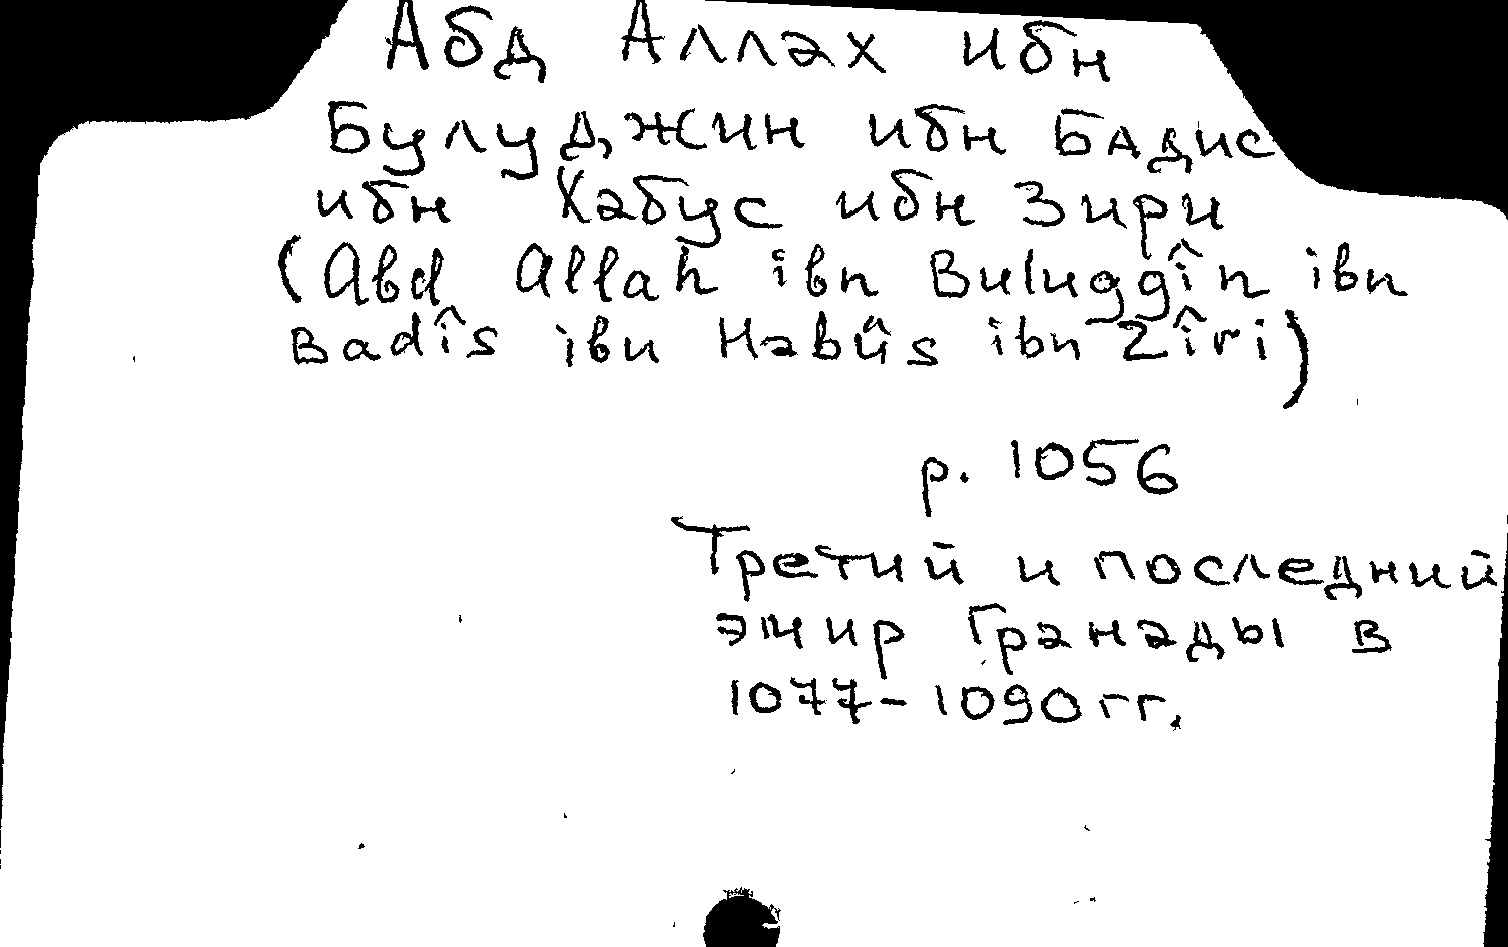 Абд Аллах ибн
Булуджин ибн Бадис
ибн Хабус ибн Зири
(Abd Allah ibn Buluggîn ibn
Badîs ibn Habûs ibn Zîri)
р. 1056
Третий и последний
эмир Гранады в
1077-1090 гг.